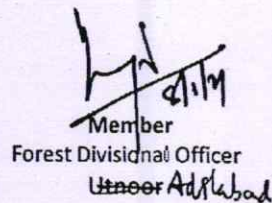 Member
Forest Divisional Officer
Utnoor Adilabad